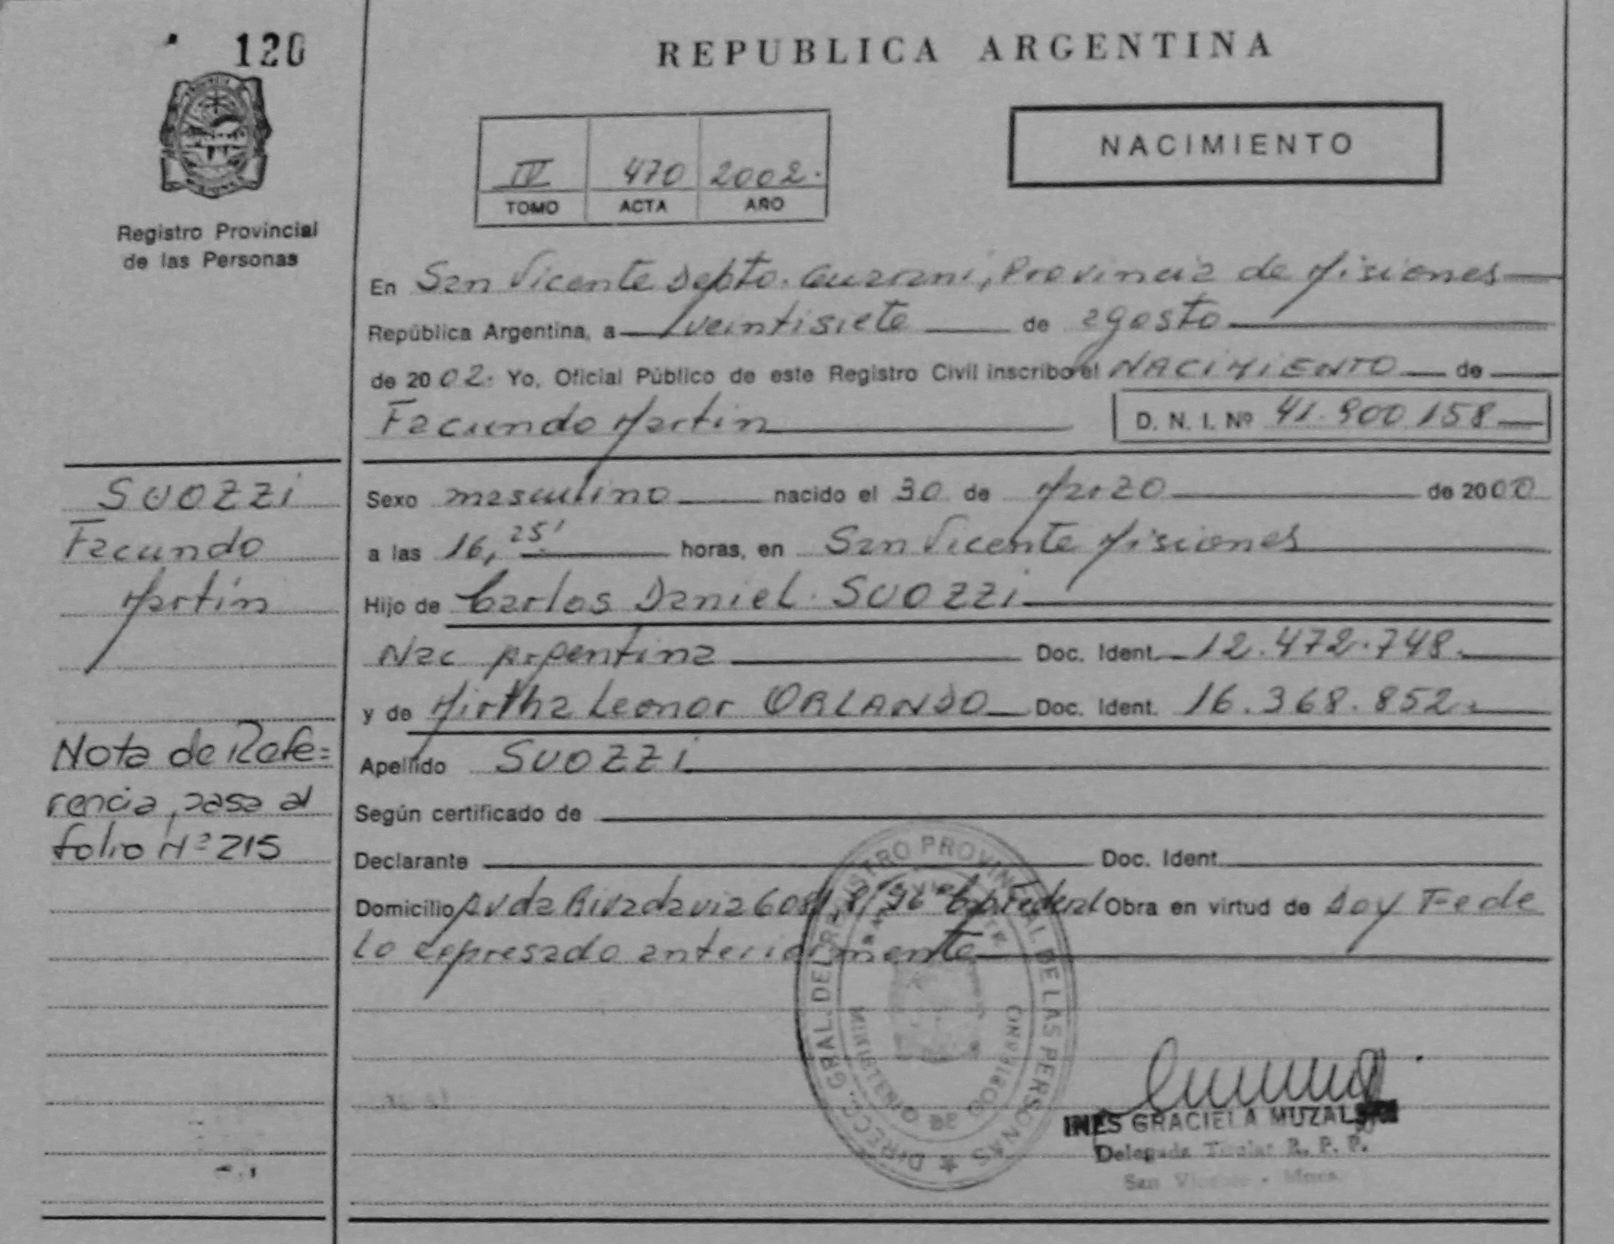 120
REPUBLICA ARGENTINA
NACIMIENTO
IV 470 2002.
TOMO ACTA AÑO
Registro Provincial
de las Personas
En San Vicente Depto. Guaraní, Provincia de Misiones
República Argentina, a veintisiete de agosto
de 2002. Yo, Oficial Público de este Registro Civil inscribo el NACIMIENTO de
Facundo Martin D. N. I. Nº 41.900 158
SUOZZI
Facundo
Martín
Sexo masculino nacido el 30 de Marzo de 2000
a las 16, 25' horas, en San Vicente Misiones
Hijo de Carlos Daniel SUOZZI
Nac Argentina Doc. Ident. 12.472.748.
y de Mirtha Leonor ORLANDO Doc. Ident. 16.368.852.
Apellido SUOZZI
Nota de Refe=
rencia, pasa al
folio Nº 215
Según certificado de
Declarante Doc. Ident.
Domicilio Avda Rivadavia Cap Federal Obra en virtud de Doy Fe de
lo expresado anteriormente
DIRECC. GRAL. DEL REGISTRO PROVINCIAL DE LAS PERSONAS
MINISTERIO DE GOBIERNO
INES GRACIELA
Delegada Titular R. P. P.
San Vicente - Mnes.